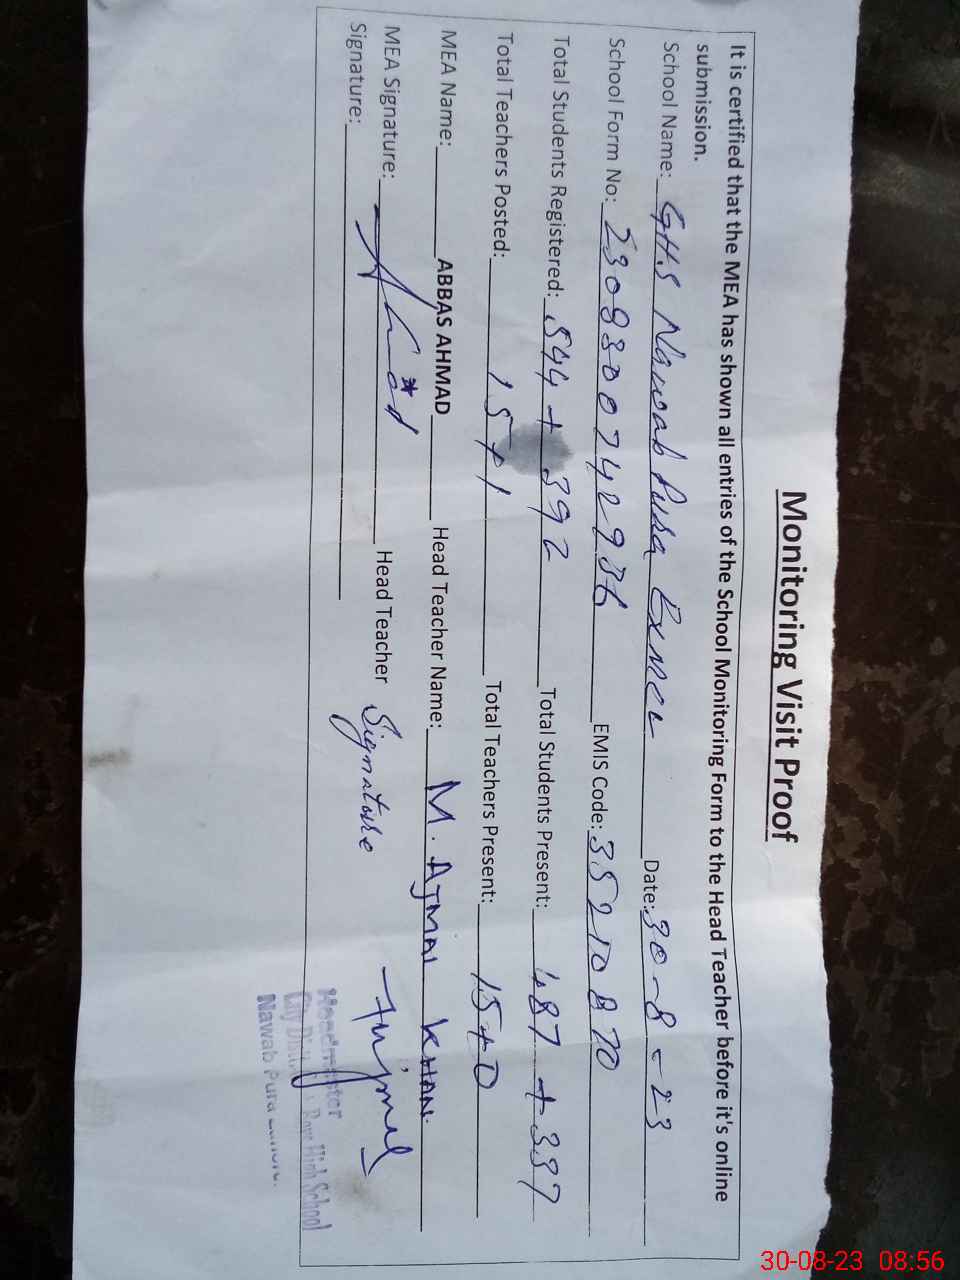 Monitoring Visit Proof
It is certified that the MEA has shown all entries of the School Monitoring Form to the Head Teacher before it's online
submission.
School Name: GHS Nawab Pura Date: 30-8-23
School Form No: EMIS Code: 35210870
Total Students Registered: 544 + 392 Total Students Present: 487 + 337
Total Teachers Posted: 15+1 Total Teachers Present: 15+0
MEA Name: ABBAS AHMAD Head Teacher Name: M. AJMAL KHAN
MEA Signature: Head Teacher Signature
Signature:
Headmaster
City District Boys High School
Nawab Pura
30-08-23 08:56